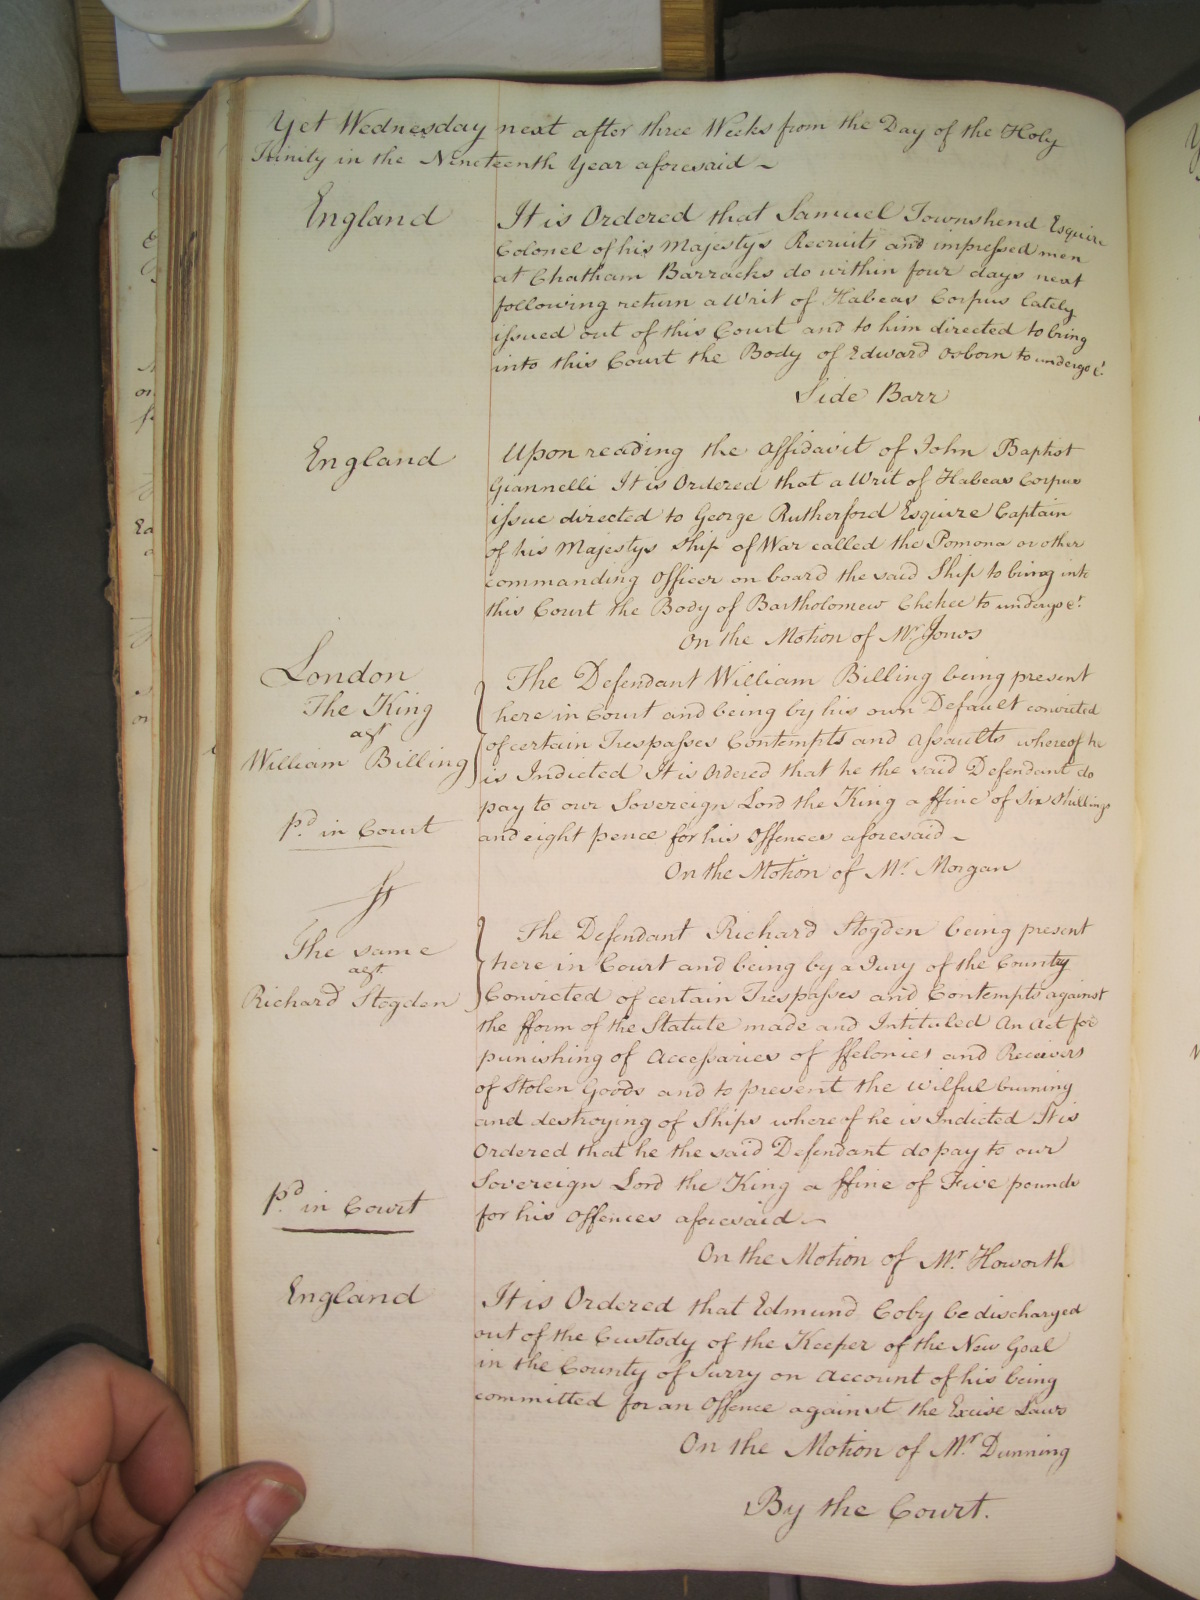 Yet Wednesday next after three Weeks from the Day of the Holy
Trinity in the Nineteenth Year aforesaid ~
England
It is Ordered that Samuel Townshend Esquire
Colonel of his Majestys Recruits and impressed men
at Chatham Barracks do within four days next
following return a Writ of Habeas Corpus lately
issued out of this Court and to him directed to bring
into this Court the Body of Edward Osborn to undergo &c.
Side Barr
England
Upon reading the Affidavit of John Baptist
Giannelli It is Ordered that a Writ of Habeas Corpus
issue directed to George Rutherford Esquire Captain
of his Majestys Ship of War called the Pomona or other
commanding Officer on board the said Ship to bring into
this Court the Body of Bartholomew to undergo &c.
On the Motion of Mr. Jones
London
The King
agst
William Billing
Pd. in Court
The Defendant William Billing being present
here in Court and being by his own Default convicted
of certain Trespasses Contempts and Assaults whereof he
is Indicted It is Ordered that he the said Defendant do
pay to our Sovereign Lord the King a ffine of six shillings
and eight pence for his Offences aforesaid ~
On the Motion of Mr. Morgan
The same
agst
Richard Stogden
Pd. in Court
The Defendant Richard Stogden being present
here in Court and being by a Jury of the County
Convicted of certain Trespasses and Contempts against
the fform of the Statute made and Intituled An Act for
punishing of Accessaries of ffelonies and Receivers
of Stolen Goods and to prevent the wilful burning
and destroying of Ships whereof he is Indicted It is
Ordered that he the said Defendant do pay to our
Sovereign Lord the King a ffine of Five pounds
for his Offences aforesaid ~
On the Motion of Mr. Howorth
England
It is Ordered that Edmund Coby be discharged
out of the Custody of the Keeper of the New Goal
in the County of Surry on account of his being
committed for an Offence against the Excise Laws
On the Motion of Mr. Dunning
By the Court.